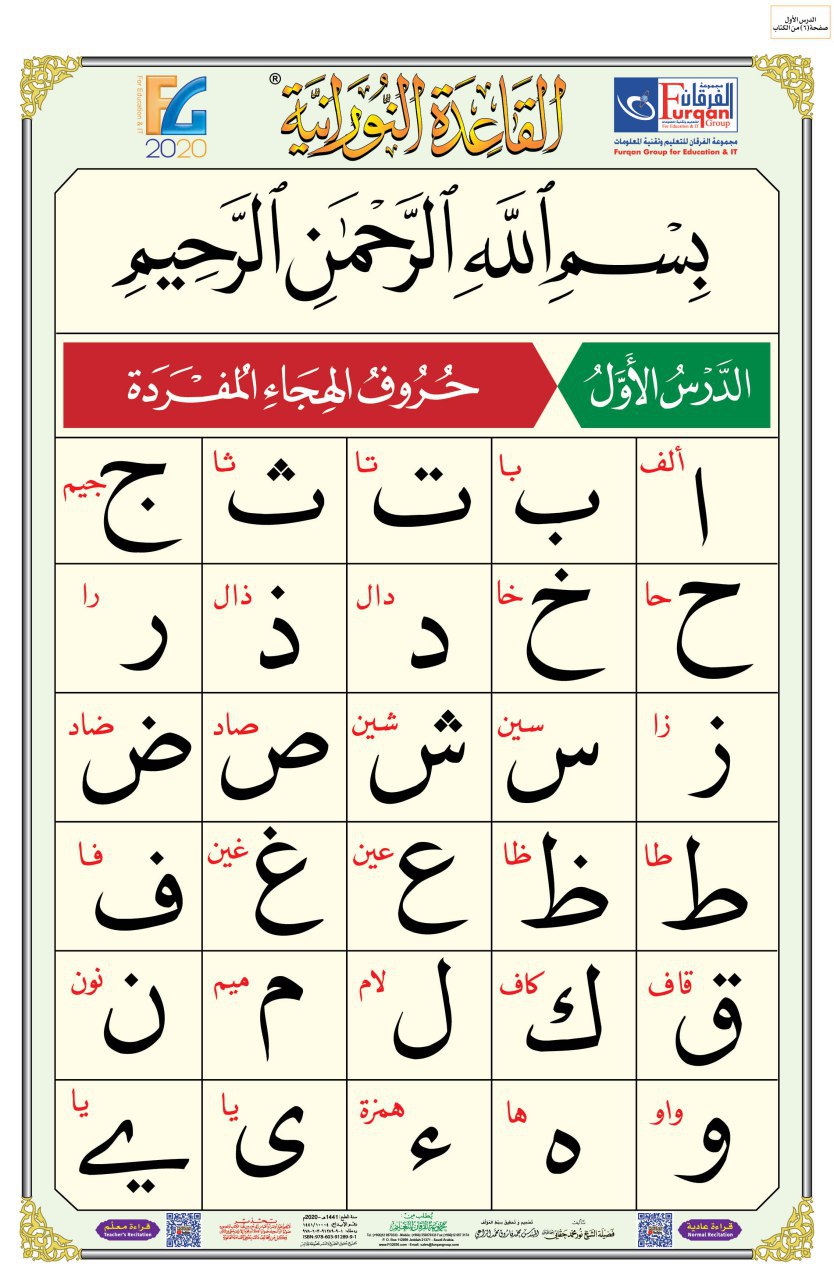 الدرس الأول
صفحة (٦) من الكتاب
مجموعة
الفرقان
Furqan
For Education & IT
Group
مجموعة الفرقان للتعليم وتقنية المعلومات
Furqan Group for Education & IT
القَاعِدَة النُّورَانِيَّة ®
FG
For Education & IT
2020
بِسْمِ ٱللَّهِ ٱلرَّحْمَٰنِ ٱلرَّحِيمِ
الدَّرْسُ الأَوَّلُ
حُرُوفُ الهِجَاءِ المُفْرَدَة
ا ألف ب با ت تا ث ثا ج جيم
ح حا خ خا د دال ذ ذال ر را
ز زا س سين ش شين ص صاد ض ضاد
ط طا ظ ظا ع عين غ غين ف فا
ق قاف ك كاف ل لام م ميم ن نون
و واو ه ها ء همزة ى يا ے يا
قراءة عادية
Normal Recitation
تأليف
فضيلة الشيخ نور محمد حقاني
يطلب من
سنة الطبع 1441هـ - 2020م
ISBN: 978-603-91289-9-1
قراءة معلم
Teacher's Recitation